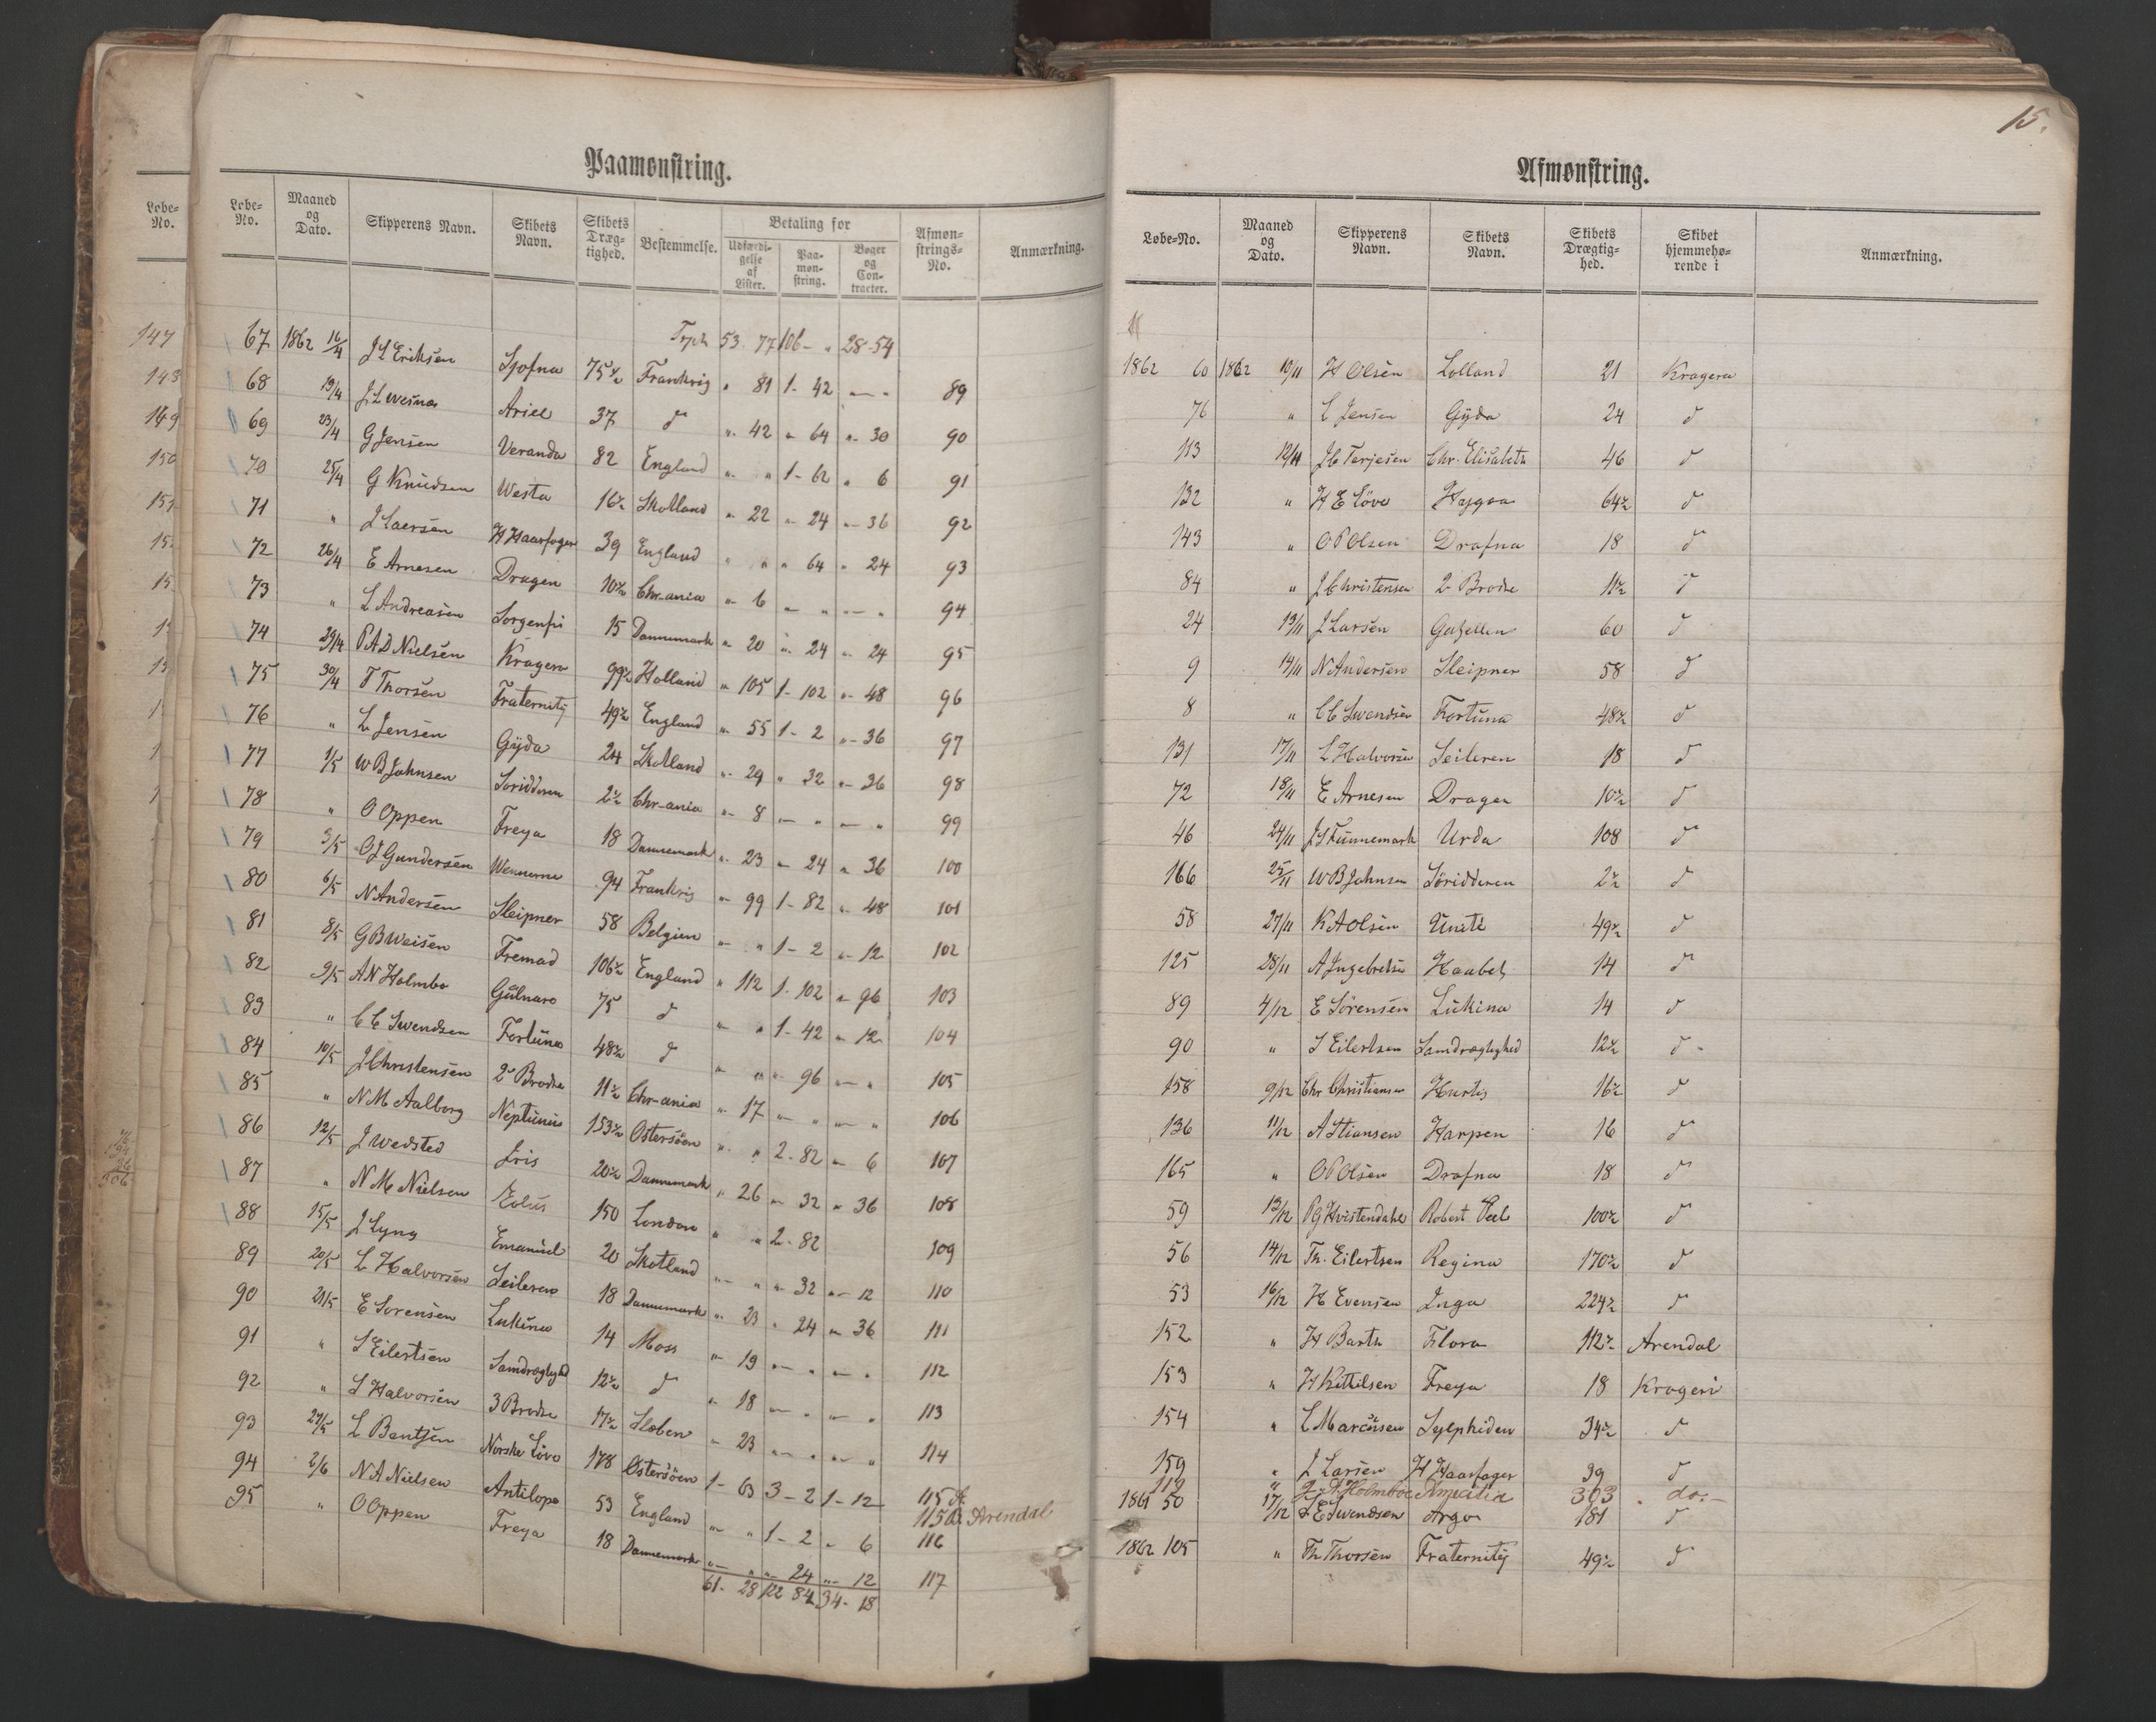 Paamønstring.
Løbe-No. Løbe-No. Maaned og Dato. Skipperens Navn. Skibets Navn. Skibets Dræg-tighed. Bestemmelse. Betaling for Udfærdi-gelse af Lister. Paa-møn-string. Bøger og Con-tracter. Afmøn-strings-No. Anmærkning.
Trp 53 77 106 - " 28-54
67 1862 16/4 J S Eriksen Sjofna 75½ Frankrig " 81 1-42 - " 89
68 19/4 J L Wesnæs Ariel 37 d " 42 " 64 " 30 90
69 23/4 G Jensen Veranda 82 England " " 1-62 " 6 91
70 25/4 G Knudsen Westa 16½ Skotland " 22 " 24 " 36 92
71 " J Laersen H Haarfager 39 England " " " 64 " 24 93
72 26/4 E Arnesen Dragen 10½ Chr-ania " 6 - " - " 94
73 " L Andreasen Sorgenfri 15 Dannemark " 20 " 24 " 24 95
74 29/4 P A D Nielsen Kragerø 99½ Holland " 105 1-102 " 48 96
75 30/4 T Thorsen Fraternity 49½ England " 55 1-2 " 36 97
76 " L Jensen Gÿda 24 Skotland " 29 " 32 " 36 98
77 1/5 W B Johnsen Soridderen 2½ Chr-ania " 8 - " - " 99
78 " O Oppen Freya 18 Dannemark " 23 " 24 " 36 100
79 3/5 O J Gundersen Wennerne 94 Frankrig " 99 1-82 " 48 101
80 6/5 N Andersen Sleipner 58 Belgien " " 1-2 " 12 102
81 8/5 G B Weisen Fremad 106½ England " 112 1-102 " 96 103
82 9/5 A N Holmbo Gülnare 75 d " " 1-42 " 12 104
83 " C C Swendsen Fortuna 48½ d " " " 96 - " 105
84 10/5 J Christensen 2 Brødre 11½ Chr-ania " 17 - " - " 106
85 " N M Aalborg Neptunus 153½ Østersöen " " 2-82 " 6 107
86 12/5 J Wedsted Iris 20½ Dannemark " 26 " 32 " 36 108
87 " N M Nielsen Eolus 150 London " " 2-82 109
88 15/5 J Lyng Emanuel 20 Skotland " " " 32 " 12 110
89 20/5 L Halvorsen Seileren 18 Dannemark " 23 " 24 " 36 111
90 21/5 E Sorensen Lukina 14 Moss " 19 - " - " 112
91 " S Eilertsen Samdrægtighed 12½ d " 18 - " - " 113
92 " S Halvorsen 3 Brødre 17½ Sleben " 23 - " - " 114
93 27/5 L Bentsen Norske Löve 178 Østersöen 1-63 3-2 1-12 115 A.
115 B. Arendal
94 2/6 N A Nielsen Antilope 53 England " " 1-2 " 6 116
95 " O Oppen Freya 18 Dannemark " " " 24 " 12 117
61-28 122 84 34-18
Afmønstring.
15.
Løbe-No. Maaned og Dato. Skipperens Navn. Skibets Navn. Skibets Drægtig-hed. Skibet hjemmehø-rende i Anmærkning.
1862 60 1862 10/11 H Olsen Lolland 21 Kragerø
76 " L Jensen Gÿda 24 d
113 12/11 J C Terjesen Chr. Elisabeth 46 d
132 " H E Löve 64½ d
143 " O P Olsen Drafna 18 d
84 " J Christensen 2 Brødre 11½ d
24 13/11 J Larsen Gazellen 60 d
9 14/11 N Andersen Sleipner 58 d
8 " C C Swendsen Fortuna 48½ d
131 17/11 L Halvorsen Seileren 18 d
72 18/11 E Arnesen Dragen 10½ d
46 24/11 J S Funnemark Urda 108 d
166 25/11 W B Johnsen Söridderen 2½ d
58 27/11 K A Olsen Unité 49½ d
125 28/11 A Ingebretsen Haabet 14 d
89 4/12 E Sörensen Lukina 14 d
90 " S Eilertsen Samdrægtighed 12½ d
158 9/12 Chr Christiansen Hurtig 16½ d
136 11/12 A Stiansen Harpen 16 d
165 " O P Olsen Drafna 18 d
59 13/12 P G Hvistendahl Robert Peel 100½ d
56 14/12 Th. Eilertsen Regina 170½ d
53 16/12 H Evensen Inga 224½ d
152 " H Barth Flora 112½ Arendal
153 " H Kittilsen Freya 18 Kragerö
154 " C Marcusen Sylphiden 34½ d
159 " J Larsen H Haarfager 39 d
119 " G. A. Holmboe Amecitia 303 do.
1861 50 17/12 S E Swendsen Argo 181 d
1862 105 " Th Thorsen Fraternity 49½ d